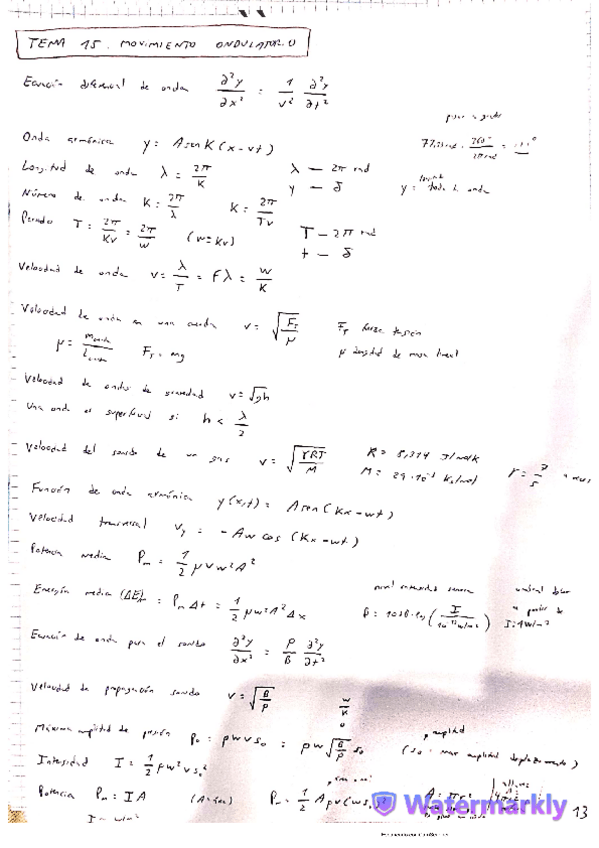 TEMA 15. MOVIMIENTO ONDULATORIO
Ecuación diferencial de onda ∂²y/∂x² = 1/v² ∂²y/∂t²
Onda armónica y = A sen K(x-vt)
Longitud de onda λ = 2π/K λ — 2π rad
y — δ
Número de onda K = 2π/λ K = 2π/Tv
Periodo T = 2π/Kv = 2π/w (w=Kv) T — 2π rad
t — δ
Velocidad de onda v = λ/T = Fλ = w/K
Velocidad de onda en una cuerda v = √(F_T/μ) F_T fuerza tensión
μ = m cuerda/L cuerda F_T = mg μ densidad de masa lineal
Velocidad de ondas de gravedad v = √gh
Una onda es superficial si h < λ/2
Velocidad del sonido de un gas v = √(γRT/M) R = 8,314 J/molK
M = 29·10⁻³ Kg/mol γ = 7/5
Función de onda armónica y(x,t) = A sen(Kx-wt)
Velocidad transversal v_y = -Aw cos(Kx-wt)
Potencia media P_m = 1/2 μvw²A²
Energía media (ΔE)m = P_m Δt = 1/2 μw²A²Δx
nivel intensidad sonora
B = 10dB·lg(I/10⁻¹²w/m²)
umbral dolor
a partir de
I=1W/m²
Ecuación de onda para el sonido ∂²y/∂x² = ρ/B ∂²y/∂t²
Velocidad de propagación sonido v = √(B/ρ)
w/K
Máxima amplitud de presión p₀ = ρwvs₀ = ρw√(B/ρ) s₀
amplitud
(s₀ = max amplitud desplazamiento)
Intensidad I = 1/2 ρw²vs₀²
Potencia P_m = IA P_m = 1/2 Aρv(ws₀)²
Watermarkly
13